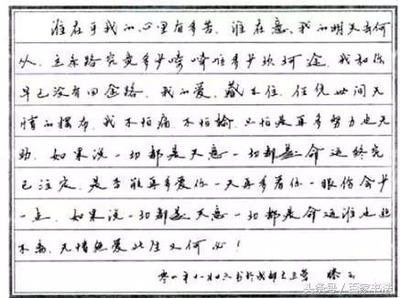 谁在乎我的心里有多苦,谁在意,我的明天去何
从,这条路究竟多少崎岖多少坎坷途,我和你
早已没有回头路,我的爱,藏不住,任凭世间无
情的摆布,我不怕痛,不怕输,只怕是再多努力也无
助,如果说一切都是天意一切都是命运终究
已注定,是否能再多爱你一天再多看你一眼伤会少
一点,如果说一切都是天意一切都是命运谁也逃
不离,无情无爱此生又何必!
头条号/百家书法